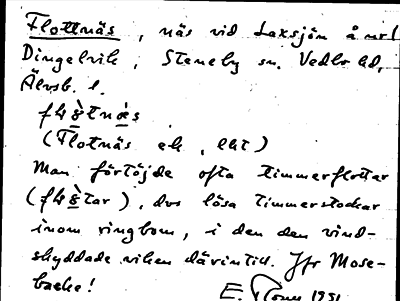 Flottnäs, näs vid Laxsjön å
Dingelvik, Steneby sn. Vedbo hd,
Älvsb. l.
(Flottnäs ek, ekt)
Man förtöjde ofta timmerflottar
dvs lösa timmerstockar
inom ringbom, i den den vind-
skyddade viken därintill. Jfr Mose-
backe!
E. 1951